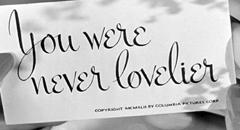 You were
never lovelier
COPYRIGHT MCMXLII BY COLUMBIA PICTURES CORP.